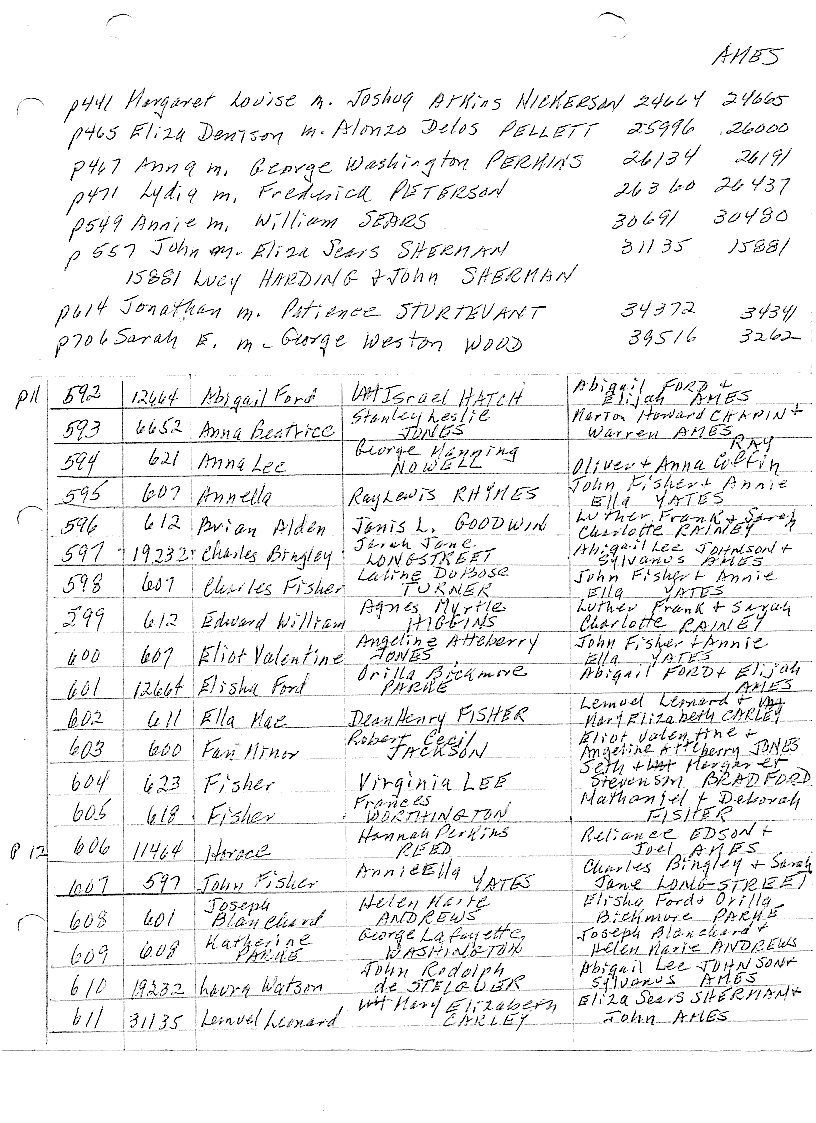 AMES
p441 Margaret Louise m. Joshua Atkins NICKERSON 24664 24665
p465 Eliza Denison m. Alonzo Delos PELLETT 25996 26000
p467 Anna m. George Washington PERKINS 26134 26191
p471 Lydia m. Frederick PETERSON 26360 26437
p549 Annie m. William SEARS 30691 30480
p 557 John m. Eliza Sears SHERMAN 31135 15881
15881 Lucy HARDING & John SHERMAN
p614 Jonathan m. Patience STURTEVANT 34372 34341
p706 Sarah E. m. George Weston WOOD 39516 3262
p11 592 12664 Abigail Ford Israel HATCH Abigail FORD & Elijah AMES
593 6652 Anna Beatrice Stanley Leslie JONES Marion Howard CHAPIN & Warren AMES
594 621 Anna Lee George Manning NOWELL Oliver & Anna Coffin RAY
595 607 Annella Ray Lewis RHYMES John Fisher & Annie Ella YATES
596 612 Brian Alden Janis L. GOODWIN Luther Frank & Sarah Charlotte RAINEY
597 19232 Charles Bingley Sarah Jane LONGSTREET Abigail Lee JOHNSON & Sylvanus AMES
598 607 Charles Fisher Latine DuBose TURNER John Fisher & Annie Ella YATES
599 612 Edward William Agnes Myrtle HIGGINS Luther Frank & Sarah Charlotte RAINEY
600 607 Eliot Valentine Angeline Atteberry JONES John Fisher & Annie Ella YATES
601 12664 Elisha Ford Orilla Bickmore PARKE Abigail FORD & Elijah AMES
602 611 Ella Mae Dean Henry FISHER Lemuel Leonard & Mary Elizabeth CARLEY
603 600 Fan Minor Robert Cecil JACKSON Eliot Valentine & Angeline Atteberry JONES
604 623 Fisher Virginia LEE Seth & Margaret Stevenson BRADFORD
605 618 Fisher Frances WORTHINGTON Nathaniel & Deborah FISHER
p 12 606 11464 Horace Hannah Perkins REED Reliance EDSON & Joel AMES
607 597 John Fisher Annie Ella YATES Charles Bingley & Sarah Jane LONGSTREET
608 601 Joseph Blanchard Helen Marie ANDREWS Elisha Ford & Orilla Bickmore PARKE
609 608 Katherine PARKE George Lafayette WASHINGTON Joseph Blanchard & Helen Marie ANDREWS
610 19232 Laura Watson John Rodolph de STEIGUER Abigail Lee JOHNSON & Sylvanus AMES
611 31135 Lemuel Leonard Mary Elizabeth CARLEY Eliza Sears SHERMAN & John AMES